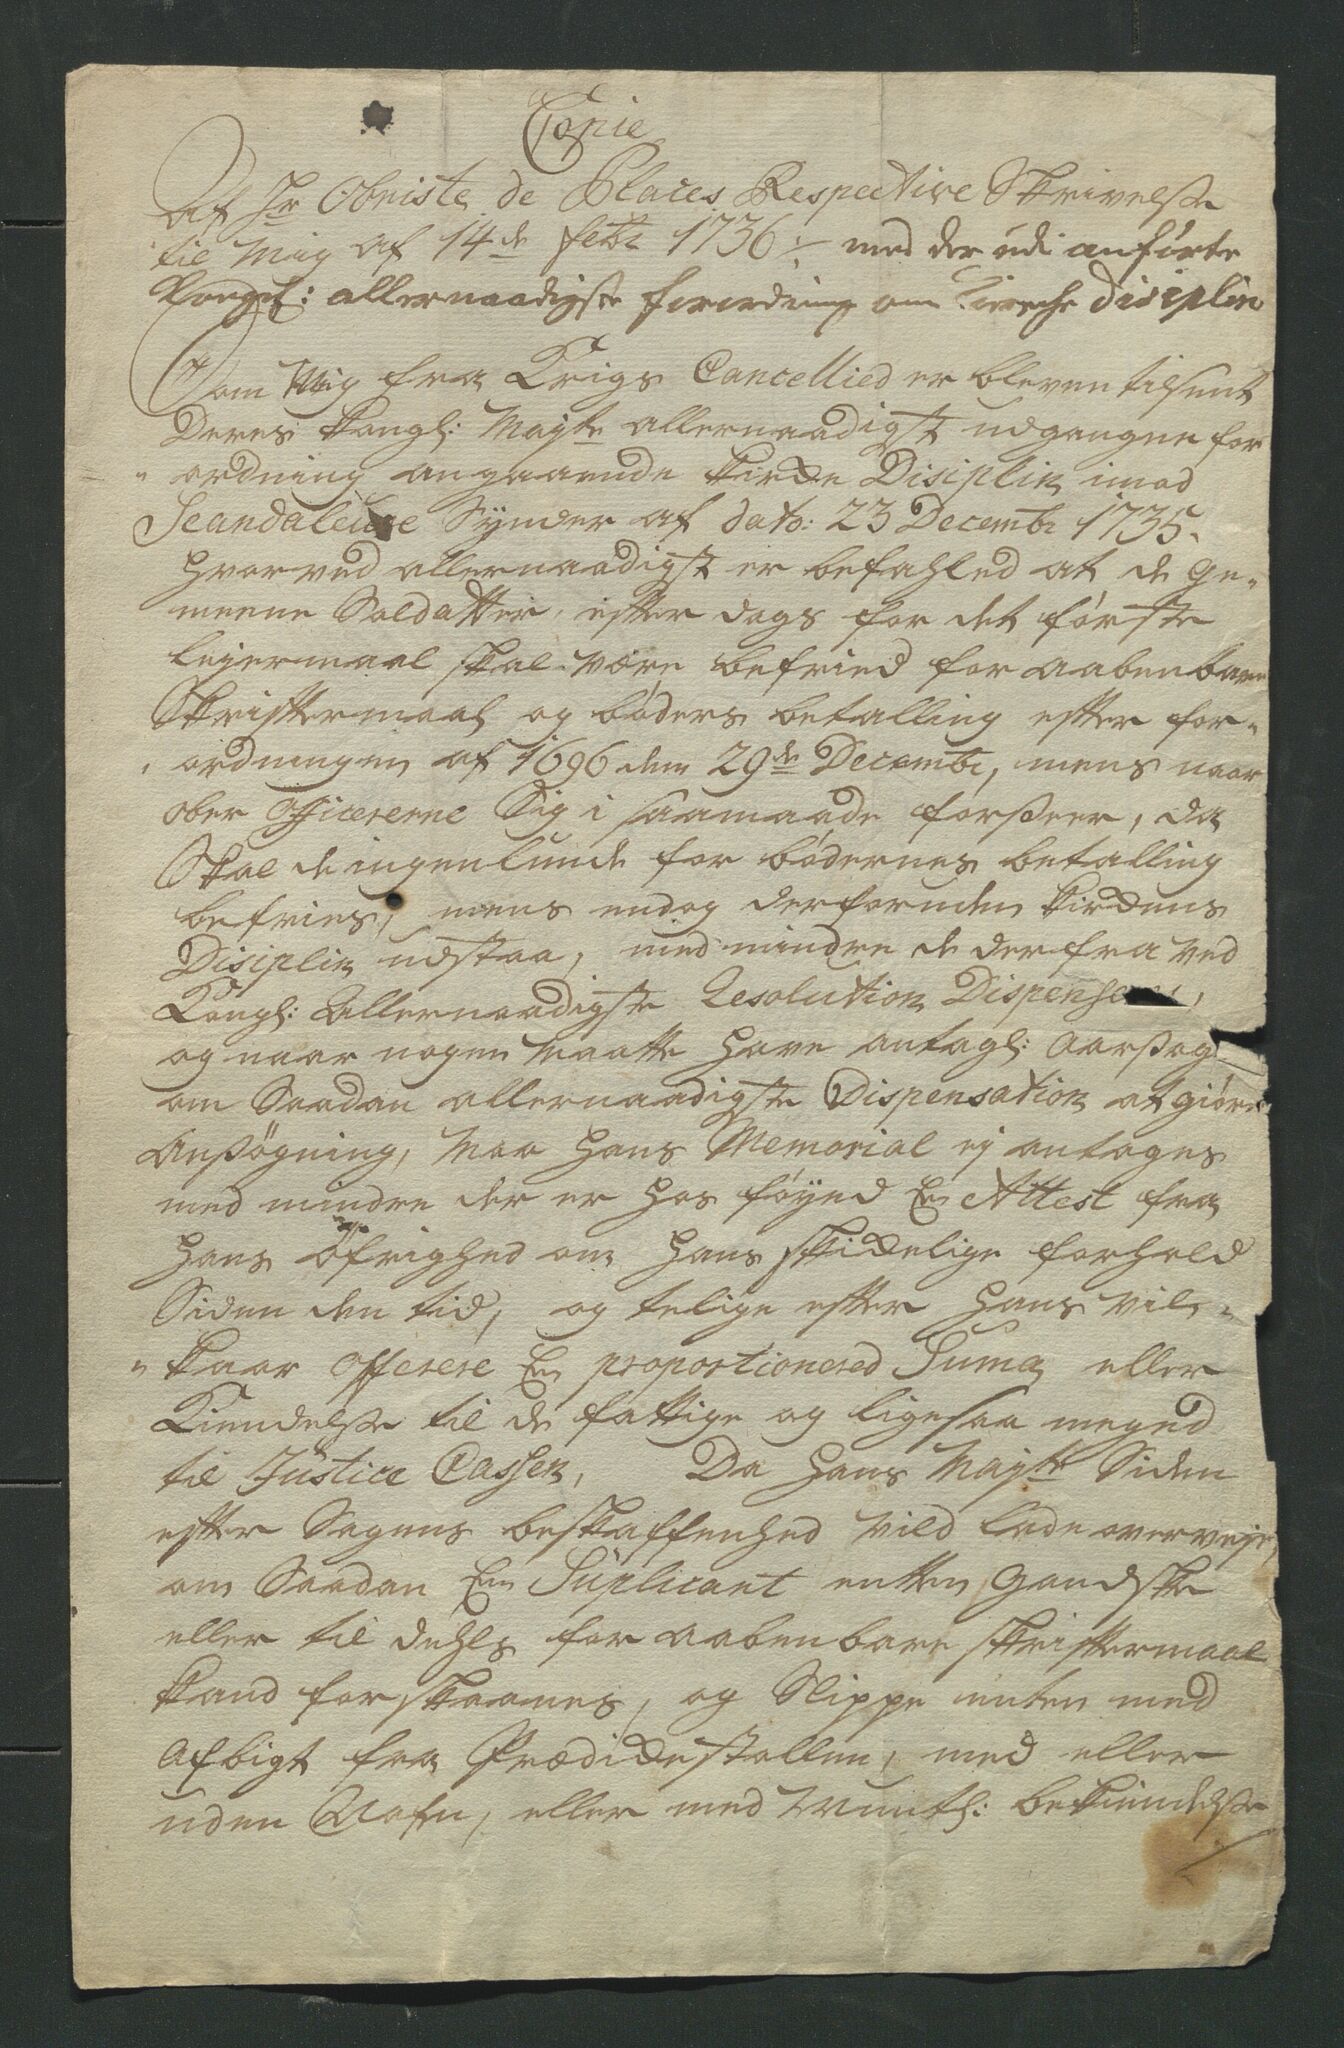 Copie
Af Hr Obriste de Places Respective Skrivelse
til Mig af 14de Febr 1736 :/ med der udi anførte
Kongl: allernaadigste forordning om Kierche Disciplin
Som Mig fra Krigs Cancellied er bleven tilsent
Deres Kongl: Mayts allernaadigst udgangne for
" ordning angaaende Kirke Disiplin imod
Scandaleuse Synder af dato: 23 Decembr 1735.
hvorved allernaadigst er befahled at de ge-
meene Soldatter, efter dags for det første
leyermaal skal være befried for aabenbare
Skriftermaal og bøders betalling efter for-
" ordningen af 1696 den 29de Decembr, mens naar
ober Officererne Sig i saamaade forseer, da
Skal de ingenlunde for bødernes betalling
befries, mens endog derforuden Kirkens
Disiplin udstaa, med mindre de derfra ved
Kongl: Allernaadigste Resolution Dispenseres,
og naar nogen Maatte have antagl: Aarsag
om Saadan allernaadigste Dispensation at giøre
Ansøgning, Maa hans Memorial ej antages
med mindre der er hos føyed En Attest fra
hans Øfrighed om hans skikkelige forhold
Siden den tid, og telige efter hans vil-
" kaar offerere En proportionered Suma eller
Kiendelse til de fattige og ligesaa meged
til Justice Cassen, Da hans Mayts Siden
efter Sagens beskaffenhed vild lade overveje,
om Saadan En Suplicant enten Gandske
eller til dehls for aabenbare skriftermaal
kand forskaanes, og Slippe enten med
Afbigt fra Prædikestollen, med eller
uden Nafn, eller med Mundtl: bekiendelse